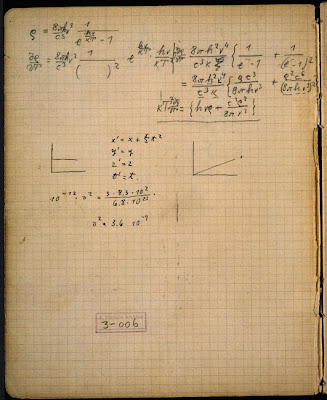 ϱ = 8πhν³/c³ 1/(e^(hν/κT) − 1)
∂ϱ/∂T = 8πhν³/c³ 1/( )² e^(hν/κT) hν/κT² = 8πh²ν⁴/c³κT² { 1/(e − 1) + 1/(e − 1)² }
= 8πh²ν⁴/c³κT² { ϱc³/8πhν³ + ϱ²c⁶/(8πhν³)² }
κT² ∂ϱ/∂T = { hνϱ + c³ϱ²/8πν² }
x' = x + t²
y' = y
z' = z
t' = t
10⁻¹² · v² = 3 · 8.3 · 10²/6.8 · 10²³
v² = 3.6 · 10⁻⁷
3-006